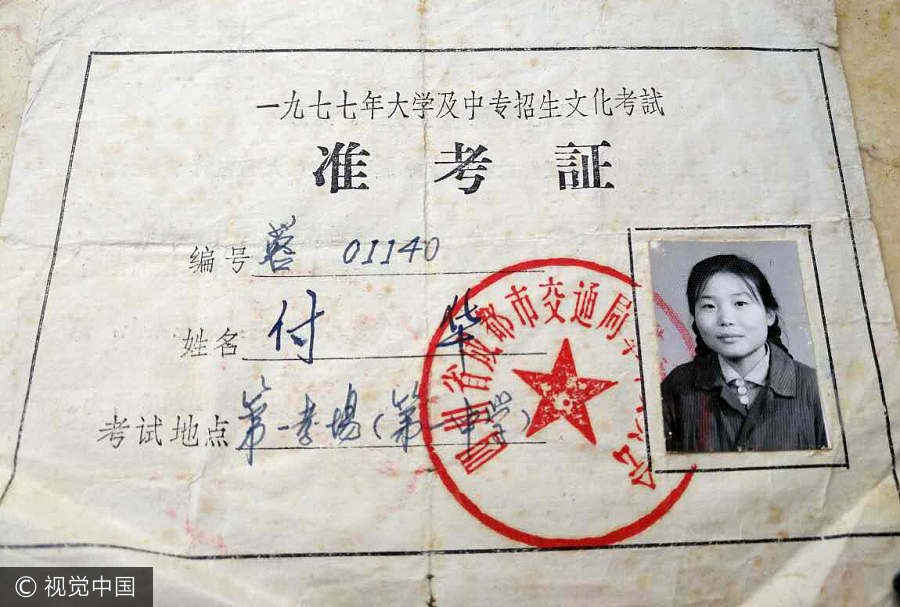 一九七七年大学及中专招生文化考試
准考証
编号 蓉 01140
姓名 付 华
考试地点 第一考場(第一中学)
四川省成都市交通局
会
© 视觉中国